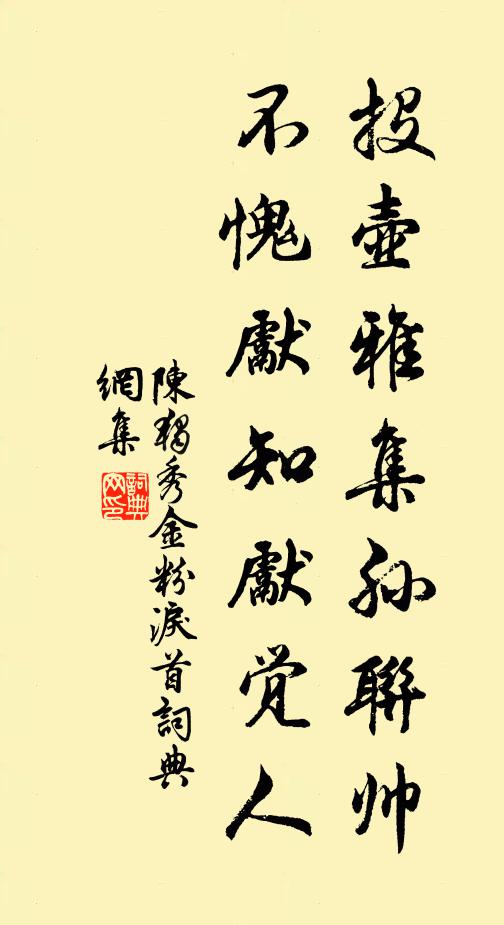 投壶雅集孙聯帅
不愧獻知獻觉人
陳獨秀金粉淚首詞典
網集
詞典
网印